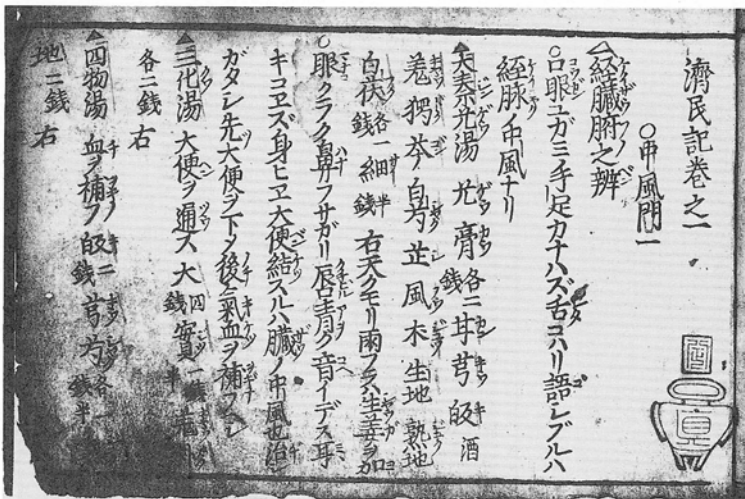 濟民記巻之一
○中風門一
△経臓腑之辨
○口眼ユガミ手足カナハズ舌コハリ語シブルハ
経脉ノ中風ナリ
▲大秦艽湯 艽 膏 各二錢 甘 芎 皈 酒
羗 獨 芩 白芍 芷 風 木 生地 熟地
白茯 各一錢 細 半錢 右天クモリ雨フラハ生姜ヲ加
○眼クラク鼻フサガリ唇青ク音イデス耳
キコヱズ身ヒヱ大便結スルハ臓ノ中風也治シ
ガタシ先大便ヲ下メ後氣血ヲ補フヘシ
▲三化湯 大便ヲ通ス 大 四錢 實 一錢半
各二錢 右
▲四物湯 血ヲ補フ 皈 二錢 芎 芍 各一錢半
地二錢 右